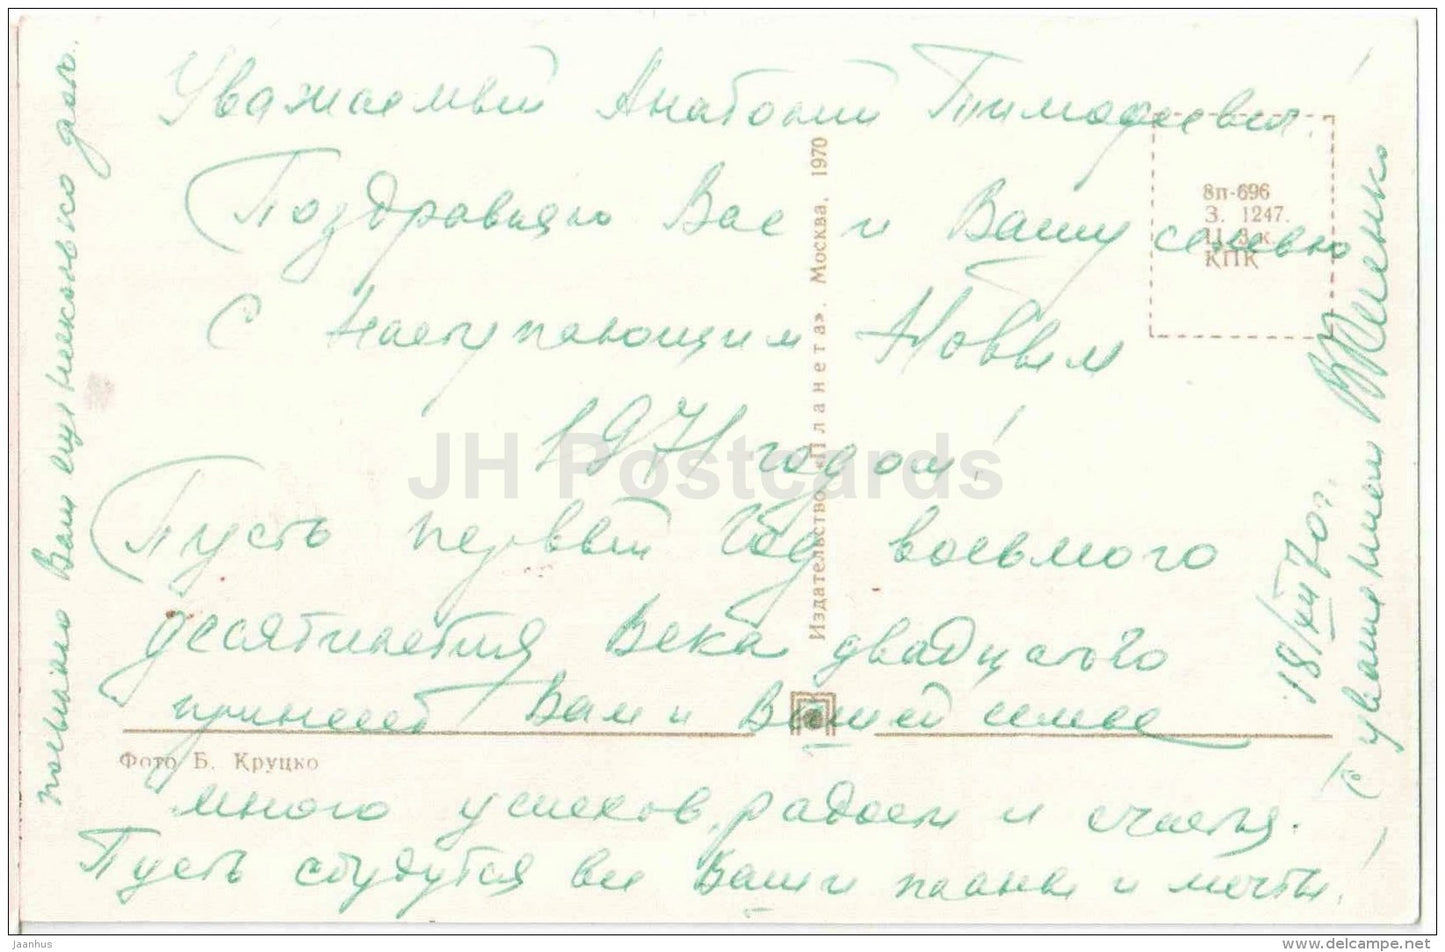 Уважаемый Анатолий Тимофеевич!
Поздравляю Вас и Вашу семью
с наступающим Новым
1971 годом!
Пусть первый год восьмого
десятилетия Века двадцатого
принесет Вам и Вашей семье
много успехов, радости и счастья.
Пусть сбудутся все Ваши планы и мечты!
С уважением
18/XII 70 г.
Вам еще несколько
Издательство «Планета». Москва, 1970
8п-696
З. 1247.
Ц. 3 к.
КПК
Фото Б. Круцко
JH Postcards
Jaanhus
www.delcampe.net